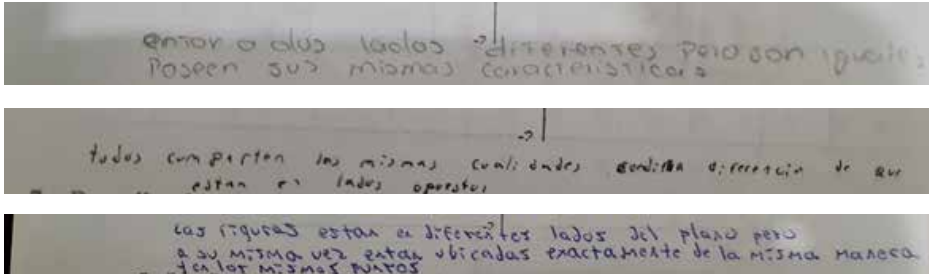 lados diferentes pero son iguales
Poseen sus mismas características
todos comparten las mismas cualidades diferencia de que
estan en lados opuestos
Las figuras estan en diferentes lados del plano pero
a su misma vez estan ubicadas exactamente de la misma manera
y en los mismos puntos